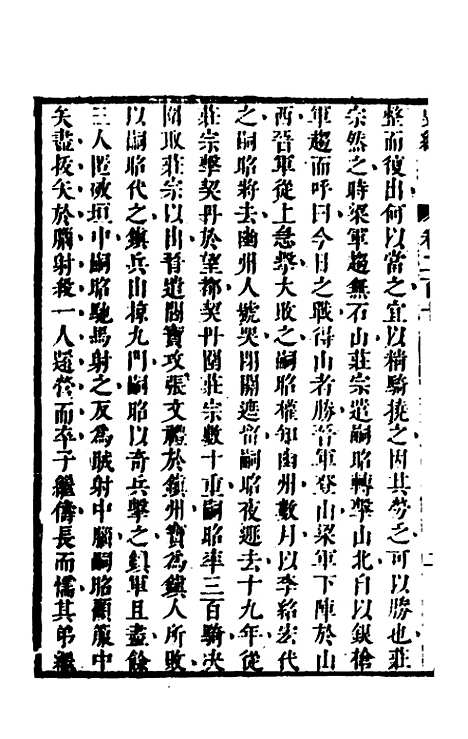 整而復出何以當之宜以精騎撓之因其勞之可以勝也莊
宗然之時梁軍趨無石山莊宗遣嗣昭轉擊山北自以銀槍
軍趨而呼曰今日之戰得山者勝晉軍登山梁軍下陣於山
西晉軍從上急擊大敗之嗣昭權知幽州數月以李紹宏代
之嗣昭將去幽州人號哭閉關遮留嗣昭夜遁去十九年從
莊宗擊契丹於望都契丹圍莊宗數十重嗣昭率三百騎决
圍取莊宗以出晉遣閻寶攻張文禮於鎮州寶為鎮人所敗
以嗣昭代之鎮兵出掠九門嗣昭以奇兵擊之鎮軍且盡餘
三人匿破垣中嗣昭馳馬射之反為賊射中腦嗣昭顧箙中
矢盡拔矢於腦射殺一人還營而卒子繼儔長而懦其弟繼